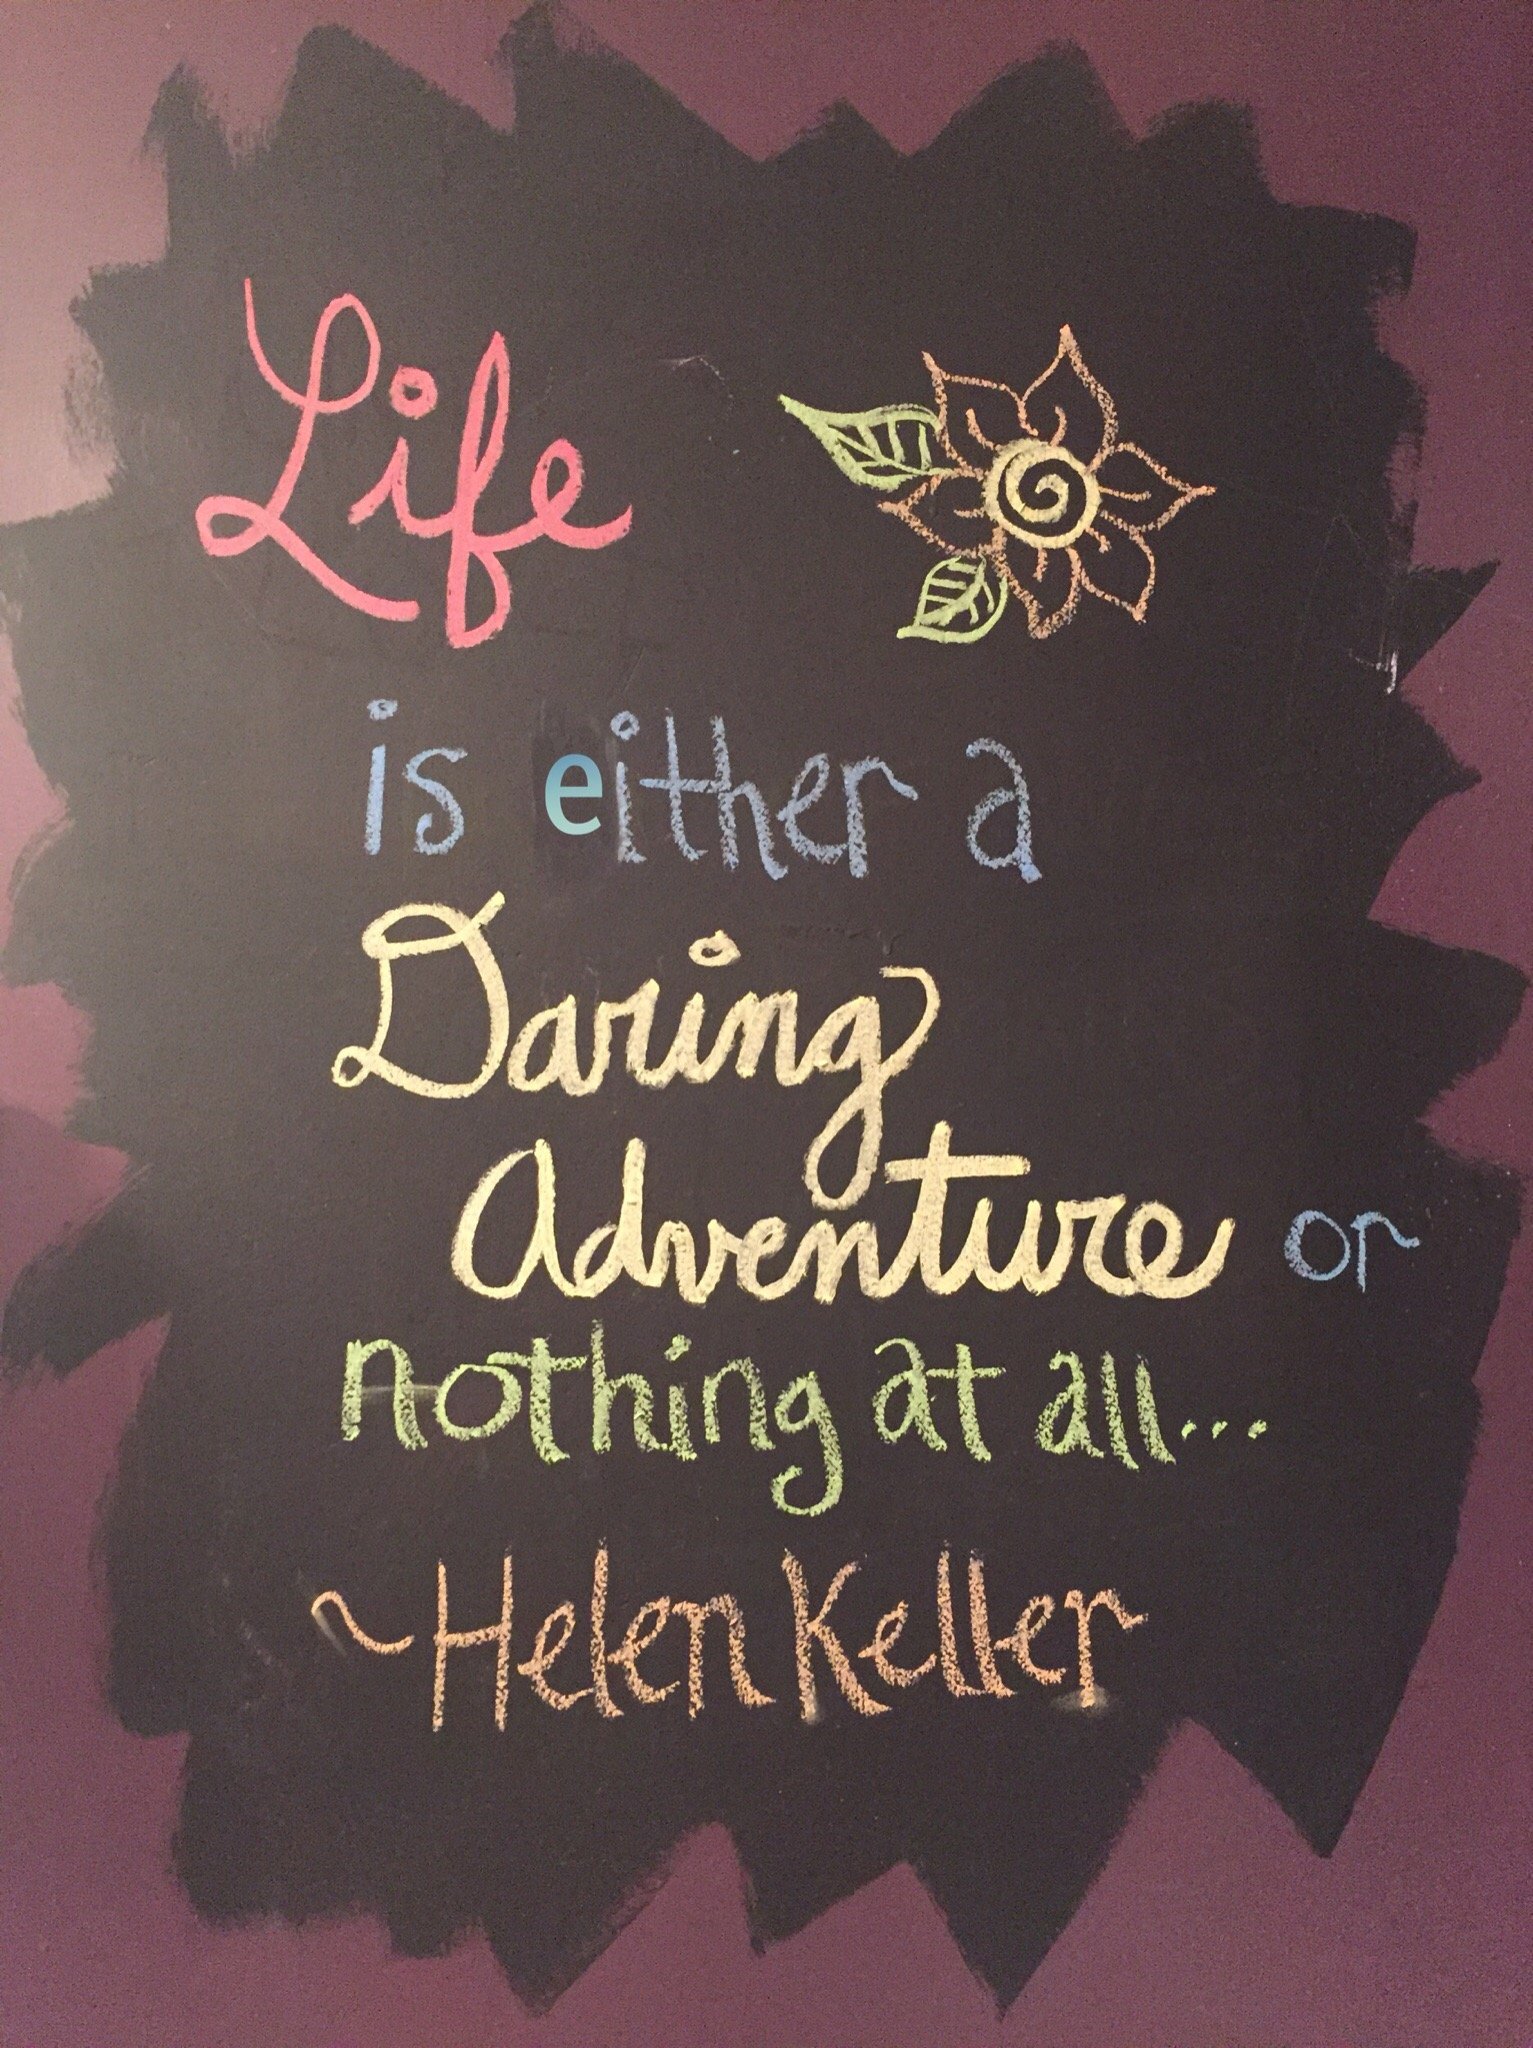 Life
is either a
Daring
Adventure or
nothing at all...
~Helen Keller